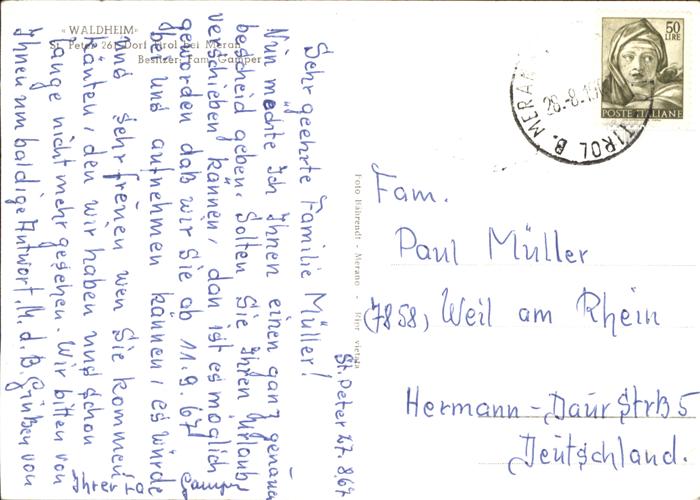 « WALDHEIM »
St. Peter 26 - Dorf Tirol bei Meran
Besitzer: Fam. Gamper
St. Peter 27. 8. 67
Sehr geehrte Familie Müller!
Nun mechte Ich Ihnen einen ganz genauen
bescheid geben. Solten Sie Ihren Urlaub
verschieben kännen, dan ist es möglich
geworden daß wir Sie ab 11. 9. 67
bei uns aufnehmen kännen, es würde
uns sehr freuen wen Sie kommen
känten, den wir haben uns schon
lange nicht mehr gesehen. Wir bitten von
Ihnen um baldige Antwort. M. d. B. Grüßen von
Ihrer Fa. Gamper
Foto Bährendt - Merano - Ripr. vietata
50
LIRE
POSTE ITALIANE
TIROL B. MERAN
28-8-19
Fam.
Paul Müller
(7858) Weil am Rhein
Hermann-Daur Strß 5
Deutschland.